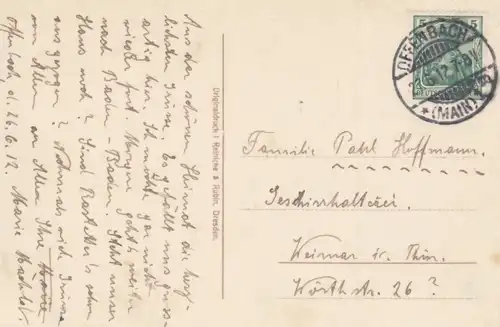 Aus der schönen Heimat die herz-
lichsten Grüsse. Es gefällt uns gross-
artig hier. Ich möchte gar nicht
wieder fort. Morgen geht's weiter
nach Baden-Baden. Steht unser
Haus noch? Sind Rastetter's schon
ausgezogen? Nochmals viele Grüsse
von Allen an Alle Ihre
Offenbach d. 26.6.12. Marie Wachtel.
Originaldruck: Reinicke & Rubin, Dresden.
5 5
OFFENBACH
(MAIN)
Familie Pahl Hoffmann.
Geschirrhalterei.
Weimar i. Thür.
Wörthstr. 26?